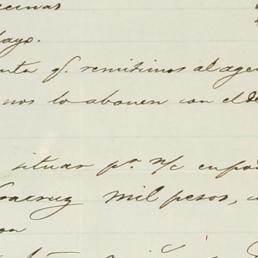 cinas
layo.
nta q. remitimos al age
nos lo abonen con el de
situar pr. n/c en po
acruz mil pesos,
on